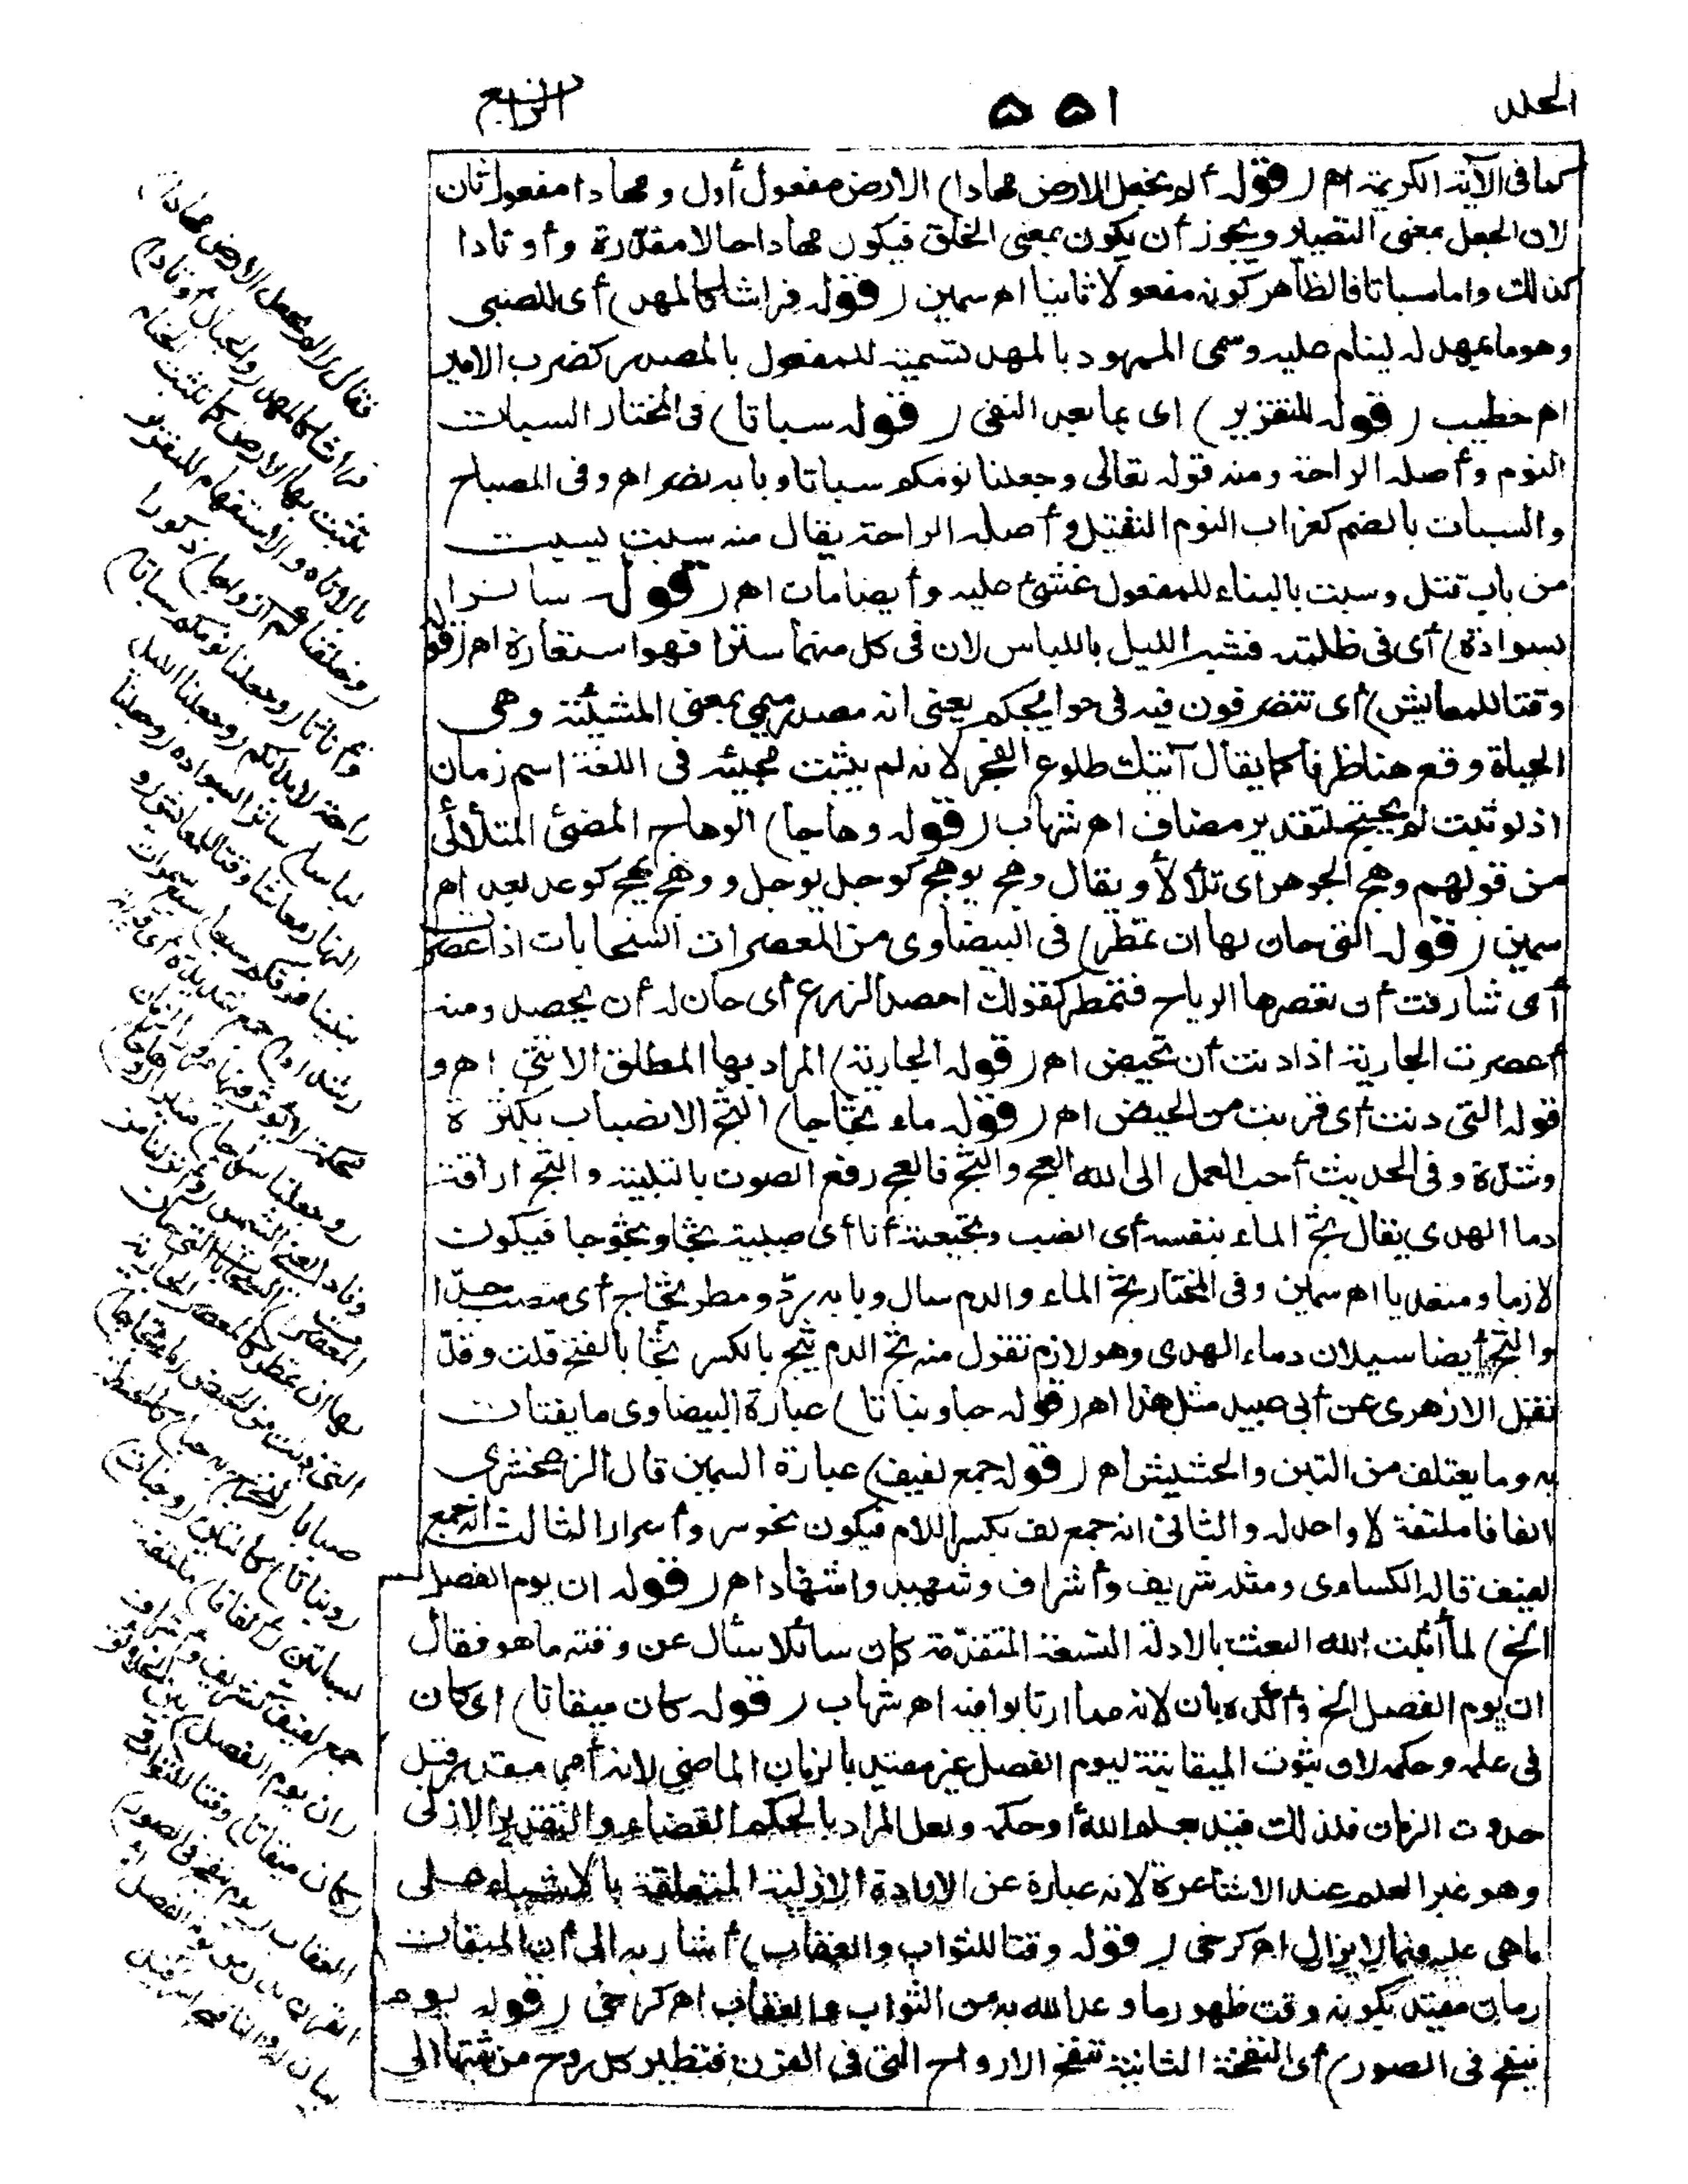 الجلد
٥٥١
الرابع
كما فى الآية الكريمة اهـ (قوله ألم نجعل الارض مهادا) الارض مفعول أول ومهادا مفعول ثان
لان الجعل بمعنى التصيير ويجوز أن يكون بمعنى الخلق فيكون مهادا حالا مقدّرة وأوتادا
كذلك واما سباتا فالظاهر كونه مفعولا ثانيا اهـ سمين (قوله فراشا كالمهد) أى للصبى
وهو ما يمهد له لينام عليه وسمى الممهود بالمهد تسمية للمفعول بالمصدر كضرب الامير
اهـ خطيب (قوله للتقرير) اى بما بعد النفى (قوله سباتا) فى المختار السبات
النوم وأصله الراحة ومنه قوله تعالى وجعلنا نومكم سباتا وبابه نصر اهـ وفى المصباح
والسبات بالضم كغراب النوم الثقيل وأصله الراحة يقال منه سبت يسبت
من باب قتل وسبت بالبناء للمفعول غشى عليه وأيضا مات اهـ (قوله ساترا
بسواده) أى فى ظلمته فشبه الليل باللباس لان فى كل منهما سترا فهو استعارة اهـ (قوله
وقتا للمعايش) أى تتصرفون فيه فى حوائجكم يعنى انه مصدر ميمى بمعنى المعيشة وهى
الحياة وقع هنا ظرفا كما يقال آتيتك طلوع الفجر لانه لم يثبت مجيئه فى اللغة اسم زمان
اذ لو ثبت لم يحتج لتقدير مضاف اهـ شهاب (قوله وهاجا) الوهاج المضئ المتلألئ
من قولهم وهج الجوهر اى تلألأ ويقال وهج يوهج كوجل يوجل ووهج يهج كوعد يعد اهـ
سمين (قوله التى حان لها ان تمطر) فى البيضاوى من المعصرات السحابات اذا أعصرت
أى شارفت أن تعصرها الرياح فتمطر كقولك احصد الزرع أى حان له أن يحصد ومنه
أعصرت الجارية اذا دنت أن تحيض اهـ (قوله الجارية) المراد بها المطلق الانثى اهـ و
قوله التى دنت أى قربت من الحيض اهـ (قوله ماء ثجاجا) الثج الانصباب بكثرة
وشدّة وفى الحديث أحب العمل الى الله العج والثج فالعج رفع الصوت بالتلبية والثج اراقة
دما الهدى يقال ثج الماء بنفسه أى انصب وثججته أنا أى صببته ثجا وثجوجا فيكون
لازما ومتعديا اهـ سمين وفى المختار ثج الماء والدم سال وبابه ردّ ومطر ثجاج أى منصب جدّا
والثج أيضا سيلان دماء الهدى وهو لازم تقول منه ثج الدم يثج بالكسر ثجا بالفتح قلت وقد
نقل الازهرى عن أبى عبيد مثل هذا اهـ (قوله حبا ونباتا) عبارة البيضاوى ما يقتات
به وما يعتلف من التبن والحشيش اهـ (قوله جمع لفيف) عبارة السمين قال الزمخشرى
الفافا ملتفة لا واحد له والثانى انه جمع لف بكسر اللام فيكون نحو سر وأسرار الثالث انه جمع
لفيف قاله الكسائى ومثله شريف وأشراف وشهيد واشهاد اهـ (قوله ان يوم الفصل
الخ) لما أثبت الله البعث بالادلة التسعة المتقدّمة كان سائلا سأل عن وقته ما هو فقال
ان يوم الفصل الخ وأكده بان لانه مما ارتابوا فيه اهـ شهاب (قوله كان ميقاتا) اى كان
فى علمه وحكمه لان ثبوت الميقاتية ليوم الفصل غير مقيد بالزمان الماضى لانه أمر مقدر قبل
حدوث الزمان فلذلك قيد بعلم الله أو حكمه ولعل المراد بالحكم القضاء والتقدير الازلى
وهو غير العلم عند الاشاعرة لانه عبارة عن الارادة الازلية المتعلقة بالاشياء على
ما هى عليه فيما لا يزال اهـ كرخى (قوله وقتا للثواب والعقاب) أشار به الى أن الميقات
زمان مقيد بكونه وقت ظهور ما وعد الله به من الثواب والعقاب اهـ كرخى (قوله يوم
ينفخ فى الصور) أى النفخة الثانية تنفخ الارواح التى فى القرن فتطير كل روح من ثقبها الى
فقال (ألم نجعل الارض مهادا)
فراشا كالمهد (والجبال أوتادا)
تثبت بها الارض كما تثبت الخيام
بالاوتاد والاستفهام للتقرير
(وخلقناكم أزواجا) ذكورا
وأناثا (وجعلنا نومكم سباتا)
راحة لابدانكم (وجعلنا الليل
لباسا) ساترا بسواده (وجعلنا
النهار معاشا) وقتا للمعايش (و
بنينا فوقكم سبعا) سبع سموات
(شدادا) جمع شديدة أى قوية
محكمة لا يؤثر فيها مرور الزمان
(وجعلنا سراجا) منيرا (وهاجا)
وقادا يعنى الشمس (وأنزلنا من
المعصرات) السحابات التى حان
لها ان تمطر كالمعصر الجارية
التى دنت من الحيض (ماء ثجاجا)
صبابا (لنخرج به حبا) كالحنطة
(ونباتا) كالتين (وجنات)
بساتين (ألفافا) ملتفة
جمع لفيف كشريف وأشراف
(ان يوم الفصل) بين الخلائق
(كان ميقاتا) وقتا للثواب و
العقاب (يوم ينفخ فى الصور)
القرن بدل من يوم الفصل أو
بيان له والنافخ اسرافيل